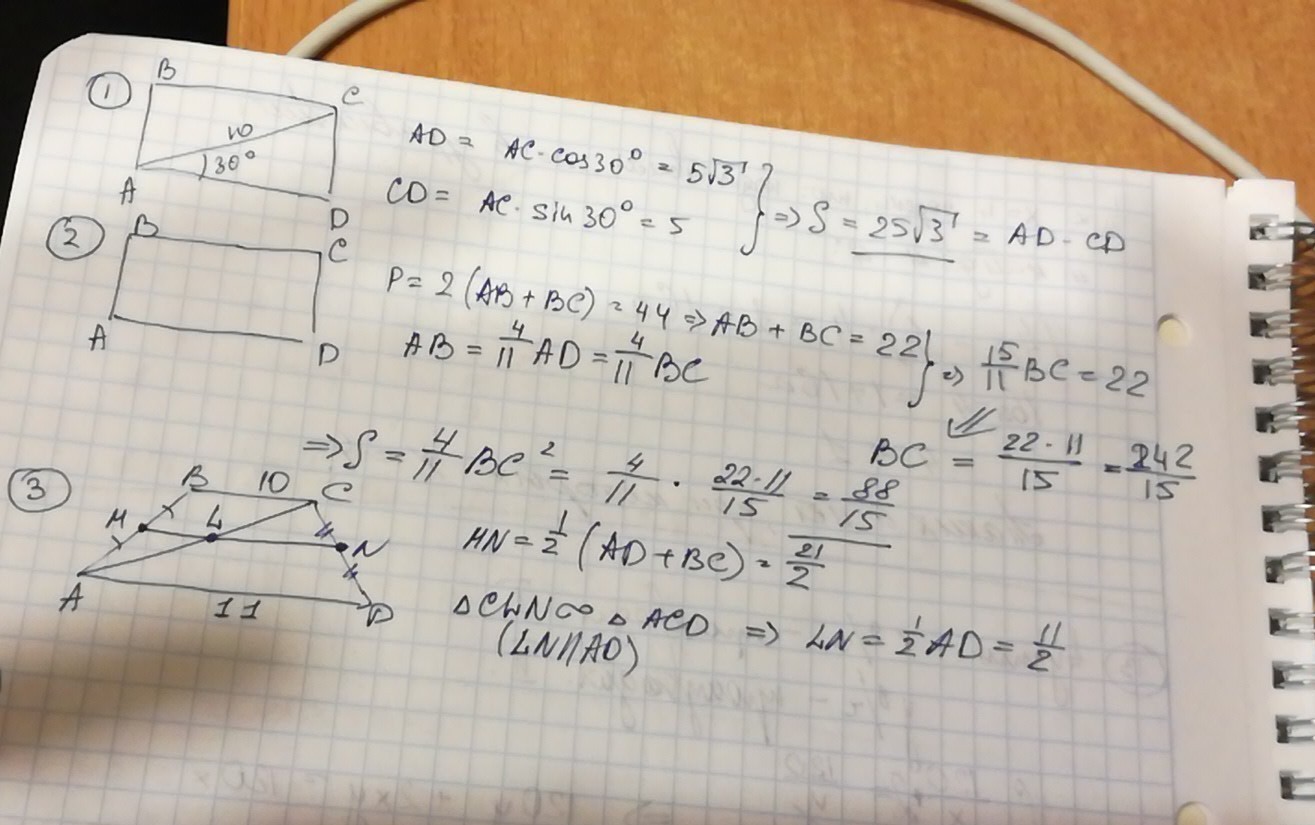 1
B
C
10
30°
A
D
AD = AC · cos30° = 5√3
CD = AC · sin30° = 5
} => S = 25√3 = AD · CD
2
B
C
A
D
P = 2 (AB + BC) = 44 => AB + BC = 22
AB = 4/11 AD = 4/11 BC
} => 15/11 BC = 22
BC = 22·11/15 = 242/15
=> S = 4/11 BC² = 4/11 · 22·11/15 = 88/15
3
B 10 C
M L N
A 11 D
MN = 1/2 (AD + BC) = 21/2
△CLN ∾ △ACD => LN = 1/2 AD = 11/2
(LN || AD)